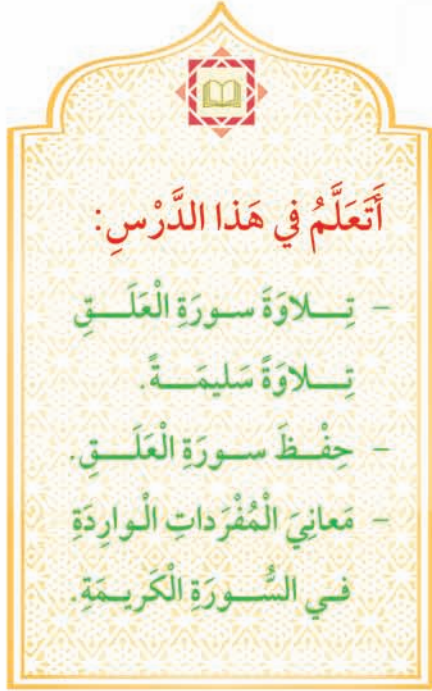 أَتَعَلَّمُ في هَذا الدَّرْسِ:
- تِــلاوَةَ ســورَةِ الْعَلَــقِ
تِــلاوَةً سَليمَــةً.
- حِفْــظَ ســورَةِ الْعَلَــقِ.
- مَعانِيَ الْمُفْرَداتِ الْـوارِدَةِ
فـي السُّــورَةِ الْكَريـمَةِ.